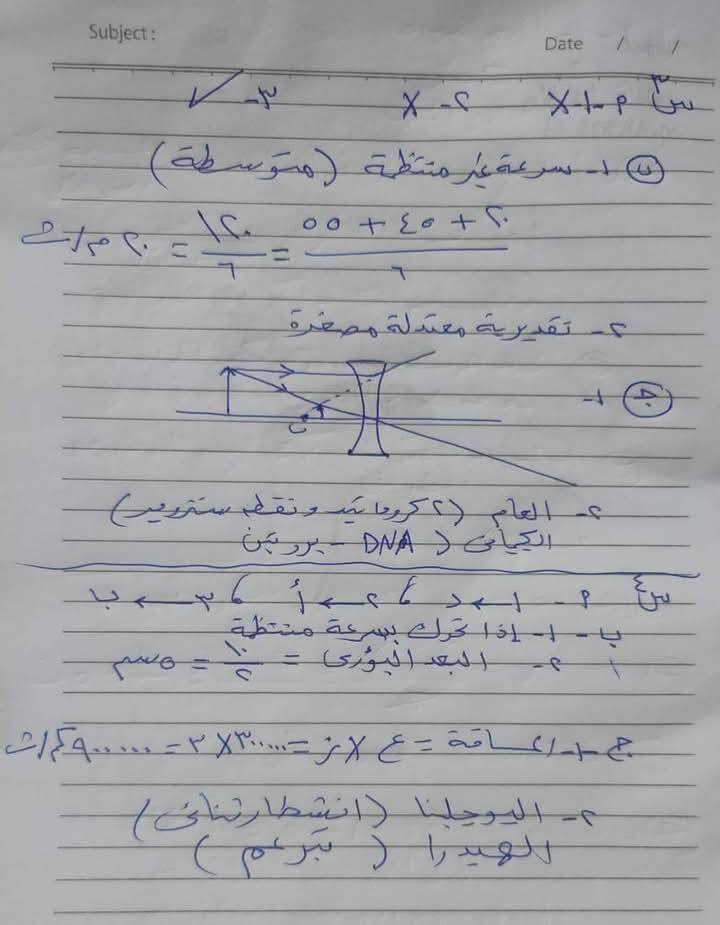 Subject:
Date / /
س٣ م - ١- X ٢- X ٣- ✓
(ب) ١- سرعة غير منتظمة (متوسطة)
٢٠ + ٤٥ + ٥٥ / ٦ = ١٢٠ / ٦ = ٢٠ م/ث
٢- تقديرية معتدلة مصغرة
(ج) ١-
٢- العام (٢ كروماتيد ونقطه سنترومير)
الكيميائى ( DNA - بروتين
س٤ م - ١ ← د ، ٢ ← أ ، ٣ ← ب
ب - ١- إذا تحرك بسرعة منتظمة
٢- البعد البؤرى = ١٠ / ٢ = ٥ سم
ج - ١- المسافة = ع X ز = ٣٠٠٠٠٠ X ٣ = ٩٠٠٠٠٠ كم/ث
٢- اليوجلينا (انشطار ثنائى)
الهيدرا ( تبرعم )